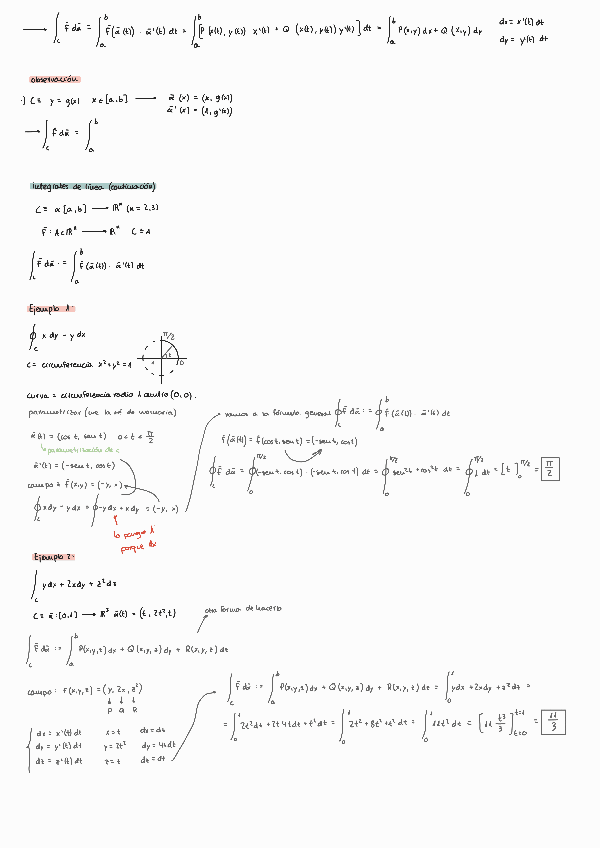 ⟶ ∫_C f̄ dᾱ = ∫_a^b f̄(ᾱ(t)) · ᾱ'(t) dt = ∫_a^b [P(x(t), y(t)) · x'(t) + Q(x(t), y(t)) y'(t)] dt = ∫_a^b P(x,y) dx + Q(x,y) dy
dx = x'(t) dt
dy = y'(t) dt
observación
·) C ≡ y = g(x) x ∈ [a,b] ⟶ ᾱ(x) = (x, g(x))
ᾱ'(x) = (1, g'(x))
⟶ ∫_C f̄ dᾱ = ∫_a^b
integrales de línea (continuación)
C ≡ α [a,b] ⟶ ℝⁿ (n = 2,3)
f̄: A ⊂ ℝⁿ ⟶ ℝⁿ C ⊂ A
∫_C f̄ dᾱ := ∫_a^b f̄(ᾱ(t)) · ᾱ'(t) dt
Ejemplo 1:
∮_C x dy - y dx
π/2
C = circunferencia x² + y² = 1
1 t 0
curva = circunferencia radio 1 centro (0,0).
parametrizar (me la sé de memoria)
ᾱ(t) = (cos t, sen t) 0 < t < π/2
parametrización de c
ᾱ'(t) = (-sen t, cos t)
campo = f̄(x,y) = (-y, x)
∮_C x dy - y dx = ∮ -y dx + x dy = (-y, x)
lo pongo A
porque dx
vamos a la fórmula general ∮_C f̄ dᾱ := ∮_a^b f(ᾱ(t)) · ᾱ'(t) dt
f(ᾱ(t)) = f(cos t, sen t) = (-sen t, cos t)
∮_C f̄ dᾱ = ∮_0^{π/2} (-sen t, cos t) · (-sen t, cos t) dt = ∮_0^{π/2} sen² t + cos² t dt = ∮_0^{π/2} 1 dt = [t]_0^{π/2} = π/2
Ejemplo 2:
∫_C y dx + 2x dy + z² dz
C ≡ ᾱ: [0,1] ⟶ ℝ³ ᾱ(t) = (t, 2t², t)
otra forma de hacerlo
∫_C f̄ dᾱ := ∫_a^b P(x,y,z) dx + Q(x,y,z) dy + R(x,y,z) dz
campo: f(x,y,z) = (y, 2x, z²)
P Q R
dx = x'(t) dt x = t dx = dt
dy = y'(t) dt y = 2t² dy = 4t dt
dz = z'(t) dt z = t dz = dt
∫_C f̄ dᾱ := ∫_a^b P(x,y,z) dx + Q(x,y,z) dy + R(x,y,z) dz = ∫_0^1 y dx + 2x dy + z² dz =
= ∫_0^1 2t² dt + 2t 4t dt + t² dt = ∫_0^1 2t² + 8t² + t² dt = ∫_0^1 11t² dt = [11 t³/3]_{t=0}^{t=1} = 11/3